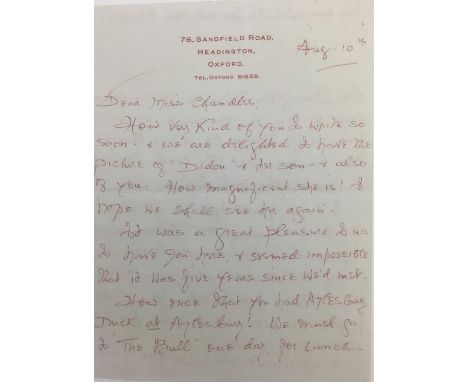 76, SANDFIELD ROAD,
HEADINGTON,
OXFORD.
TEL. OXFORD 61639.
Aug. 10th
Dear Miss Chandler.
How very kind of you to write so
soon - & we are delighted to have the
picture of "Didon" & her son - & also
of you. How magnificent she is! I
hope we shall see her again.
It was a great pleasure to us
to have you here, & seemed impossible
that it was five years since we'd met.
How nice that you had Aylesbury
Duck at Aylesbury! We must go
to "The Bull" one day for Lunch -